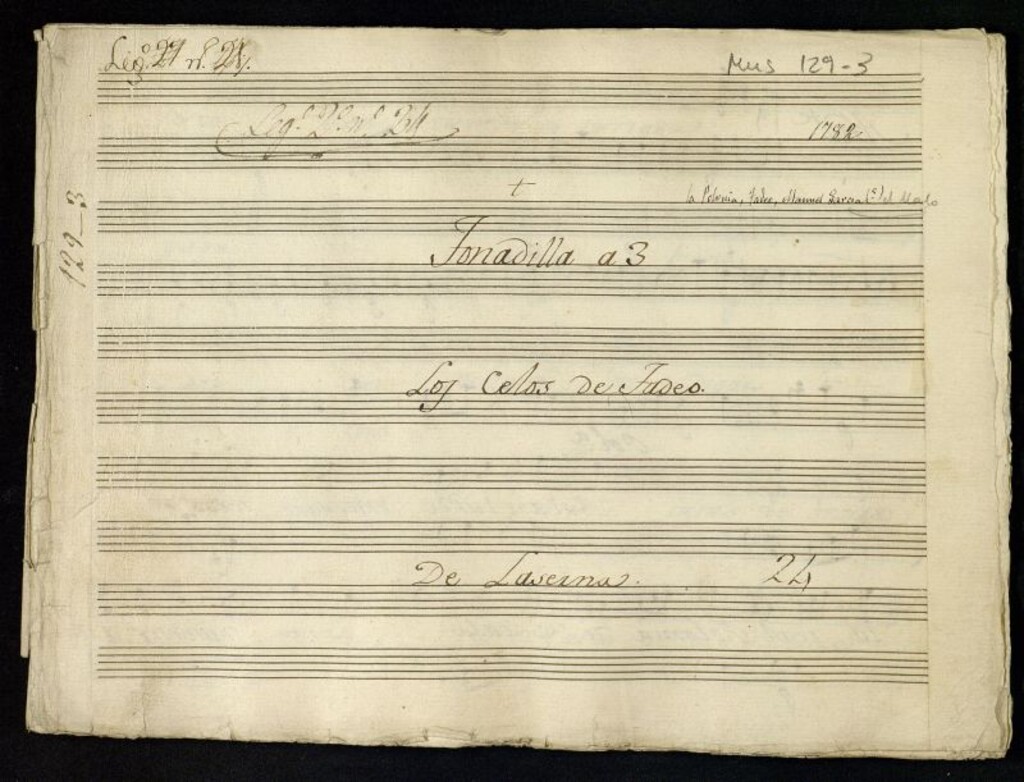 Leg.º 27 n.º 24.
Mus 129-3
Leg.º 2.º n.º 24
1782
+
la Polonia, Tadeo, Manuel Garcia
129-3
Tonadilla a 3
Los Celos de Tadeo.
De Laserna.
24